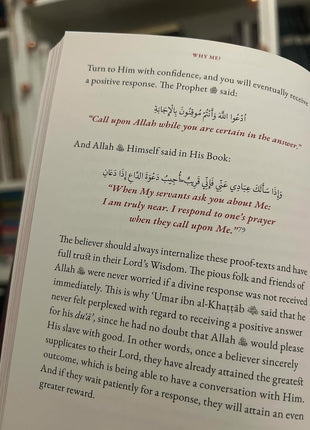 WHY ME?
Turn to Him with confidence, and you will eventually receive
a positive response. The Prophet ﷺ said:
ادْعُوا اللَّهَ وَأَنْتُمْ مُوقِنُونَ بِالْإِجَابَةِ
“Call upon Allah while you are certain in the answer.”
And Allah ﷻ Himself said in His Book:
وَإِذَا سَأَلَكَ عِبَادِي عَنِّي فَإِنِّي قَرِيبٌ أُجِيبُ دَعْوَةَ الدَّاعِ إِذَا دَعَانِ
“When My servants ask you about Me:
I am truly near. I respond to one’s prayer
when they call upon Me.”79
The believer should always internalize these proof-texts and have
full trust in their Lord’s Wisdom. The pious folk and friends of
Allah ﷻ were never worried if a divine response was not received
immediately. This is why ‘Umar ibn al-Khaṭṭāb said that he
never felt perplexed with regard to receiving a positive answer
for his du‘ā’, since he had no doubt that Allah ﷻ would please
His slave with good. In other words, once a believer sincerely
supplicates to their Lord, they have already attained the greatest
outcome, which is being able to have a conversation with Him.
And if they wait patiently for a response, they will attain an even
greater reward.